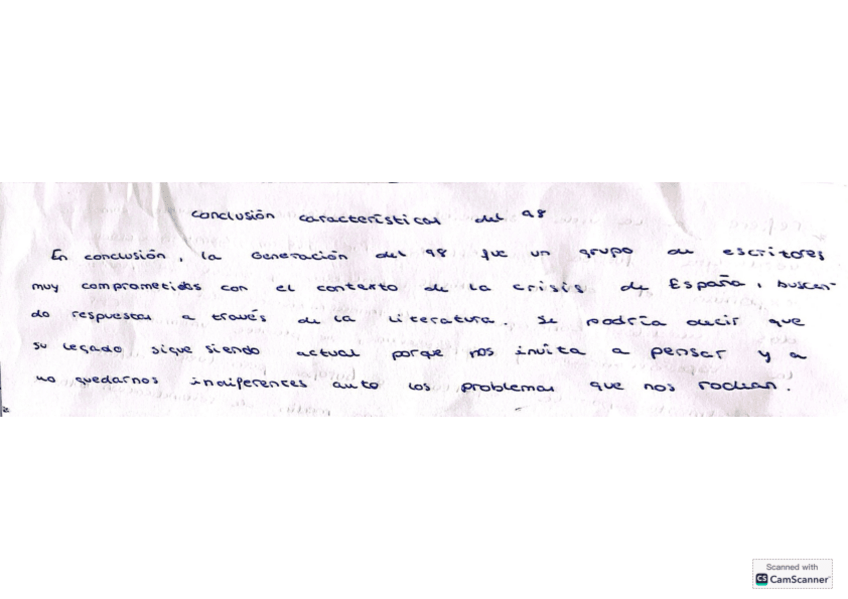 conclusión características del 98
En conclusión, la Generación del 98 fue un grupo de escritores
muy comprometidos con el contexto de la crisis de España, buscan-
do respuestas a través de la literatura. Se podría decir que
su legado sigue siendo actual porque nos invita a pensar y a
no quedarnos indiferentes ante los problemas que nos rodean.
Scanned with
CS CamScanner